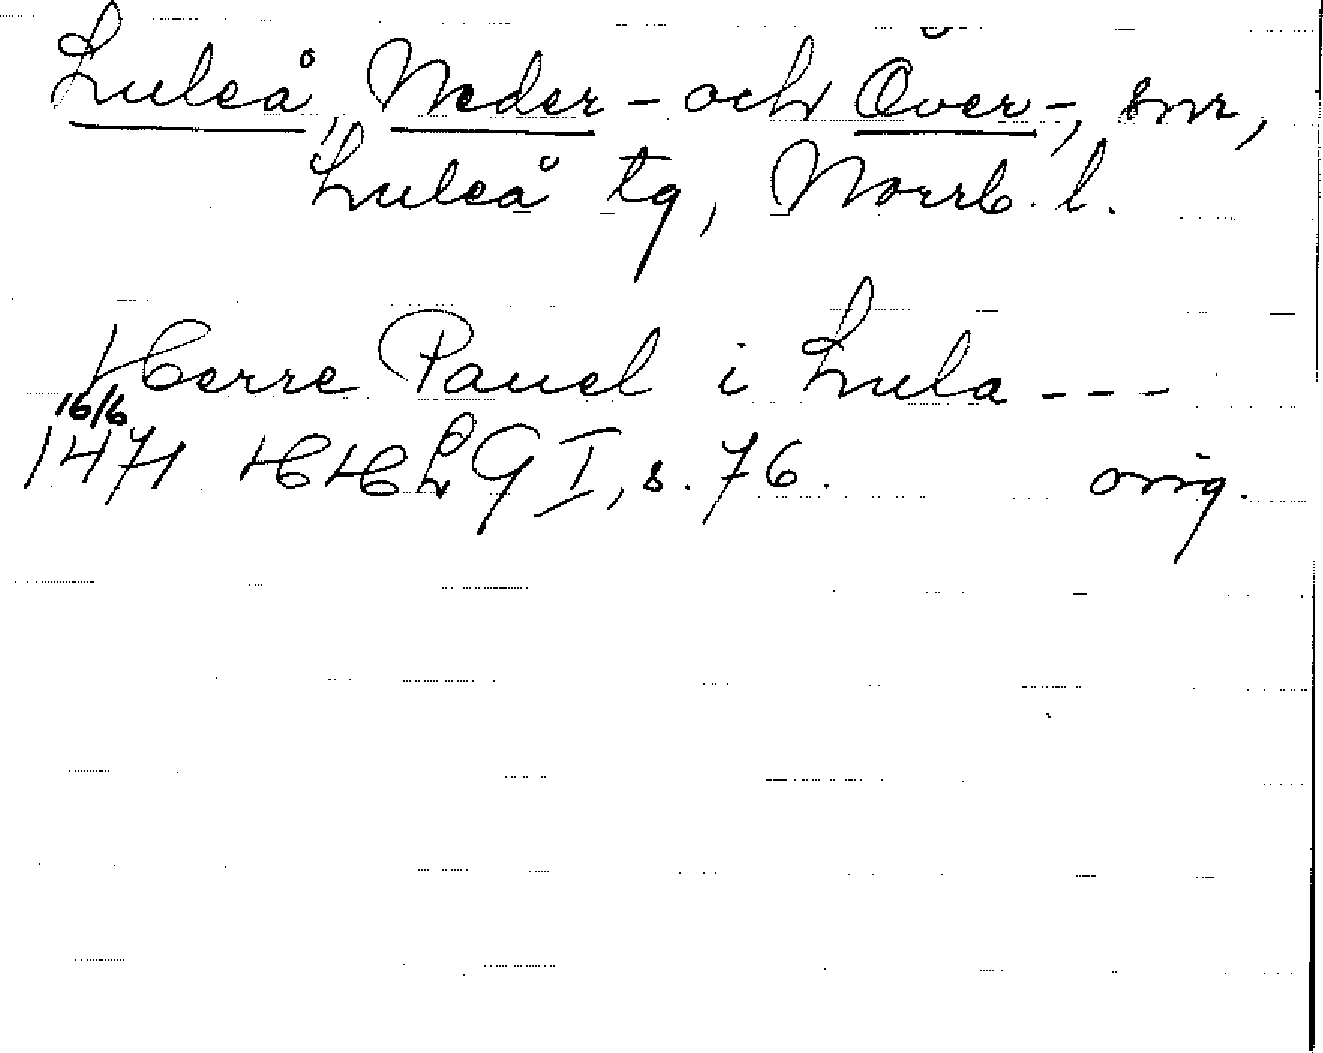 Luleå, Neder- och Över-, snr,
Luleå tg, Norrb. l.
Herre Pauel i Lula ---
16/6
1471 HHLG I, s. 76. orig.